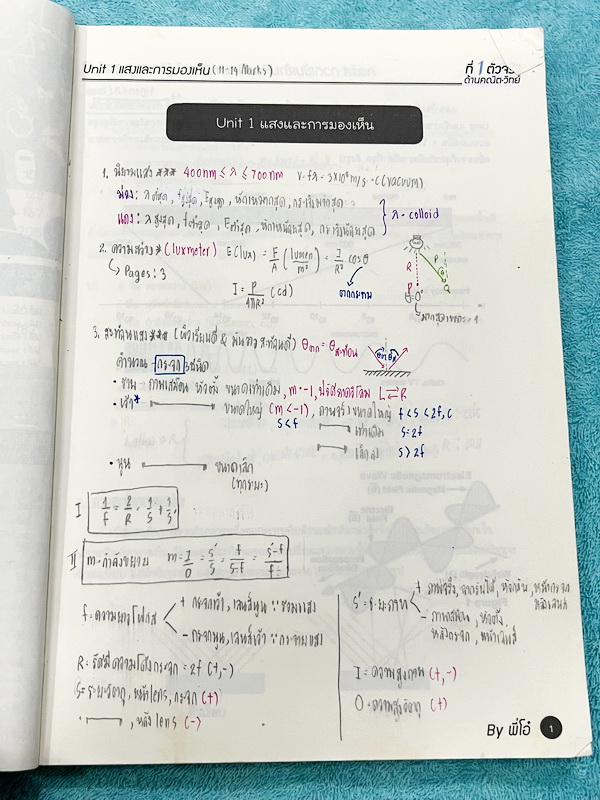 Unit 1 แสงและการมองเห็น (11-14 Marks)
ที่ 1 ตัวจริง
ด้านคณิต-วิทย์
Unit 1 แสงและการมองเห็น
1. นิยามแสง *** 400nm ≤ λ ≤ 700nm v=fλ = 3×10⁸ m/s = c (vacuum)
ม่วง: λ ต่ำสุด, f สูงสุด, E สูงสุด, หักเหมากสุด,
แดง: λ สูงสุด, f ต่ำสุด, E ต่ำสุด, หักเหน้อยสุด,
λ colloid
2. ความสว่าง * (luxmeter) E(lux) = F/A (lumen/m²) = I/R² cosθ
↳ Pages: 3
I = P/4πR² (cd)
ตกกระทบ
R
P
θ
3. สะท้อนแสง *** (ผิวเรียบดี & มันวาวสะท้อนดี) θตก = θสะท้อน
คำนวณ - กระจก 3 ชนิด
• ราบ - ภาพเสมือน หัวตั้ง ขนาดเท่าเดิม, m=-1, L ⇄ R
• เว้า*
ขนาดใหญ่ (m<-1), ภาพจริง ขนาดใหญ่ f<s<2f, c
s<f
เท่าเดิม s=2f
เล็กลง s>2f
• นูน
ขนาดเล็ก
(ทุกระยะ)
I 1/f = 2/R = 1/s + 1/s'
II m=กำลังขยาย m = I/O = s'/s = f/s-f = s'-f/f
f=ความยาวโฟกัส
+ กระจกเว้า, เลนส์นูน ∵ รวมแสง
- กระจกนูน, เลนส์เว้า ∵ กระจายแสง
R = รัศมีความโค้งกระจก = 2f (+,-)
S = ระยะวัตถุ, หน้า lens, กระจก (+)
, หลัง lens (-)
s' = ระยะภาพ
+ ภาพจริง, ฉากรับได้, หัวกลับ, หน้ากระจก
หลังเลนส์
- ภาพเสมือน, หัวตั้ง,
หลังกระจก, หน้าเลนส์
I = ความสูงภาพ (+,-)
O = ความสูงวัตถุ (+)
By พี่โอ๋ 1